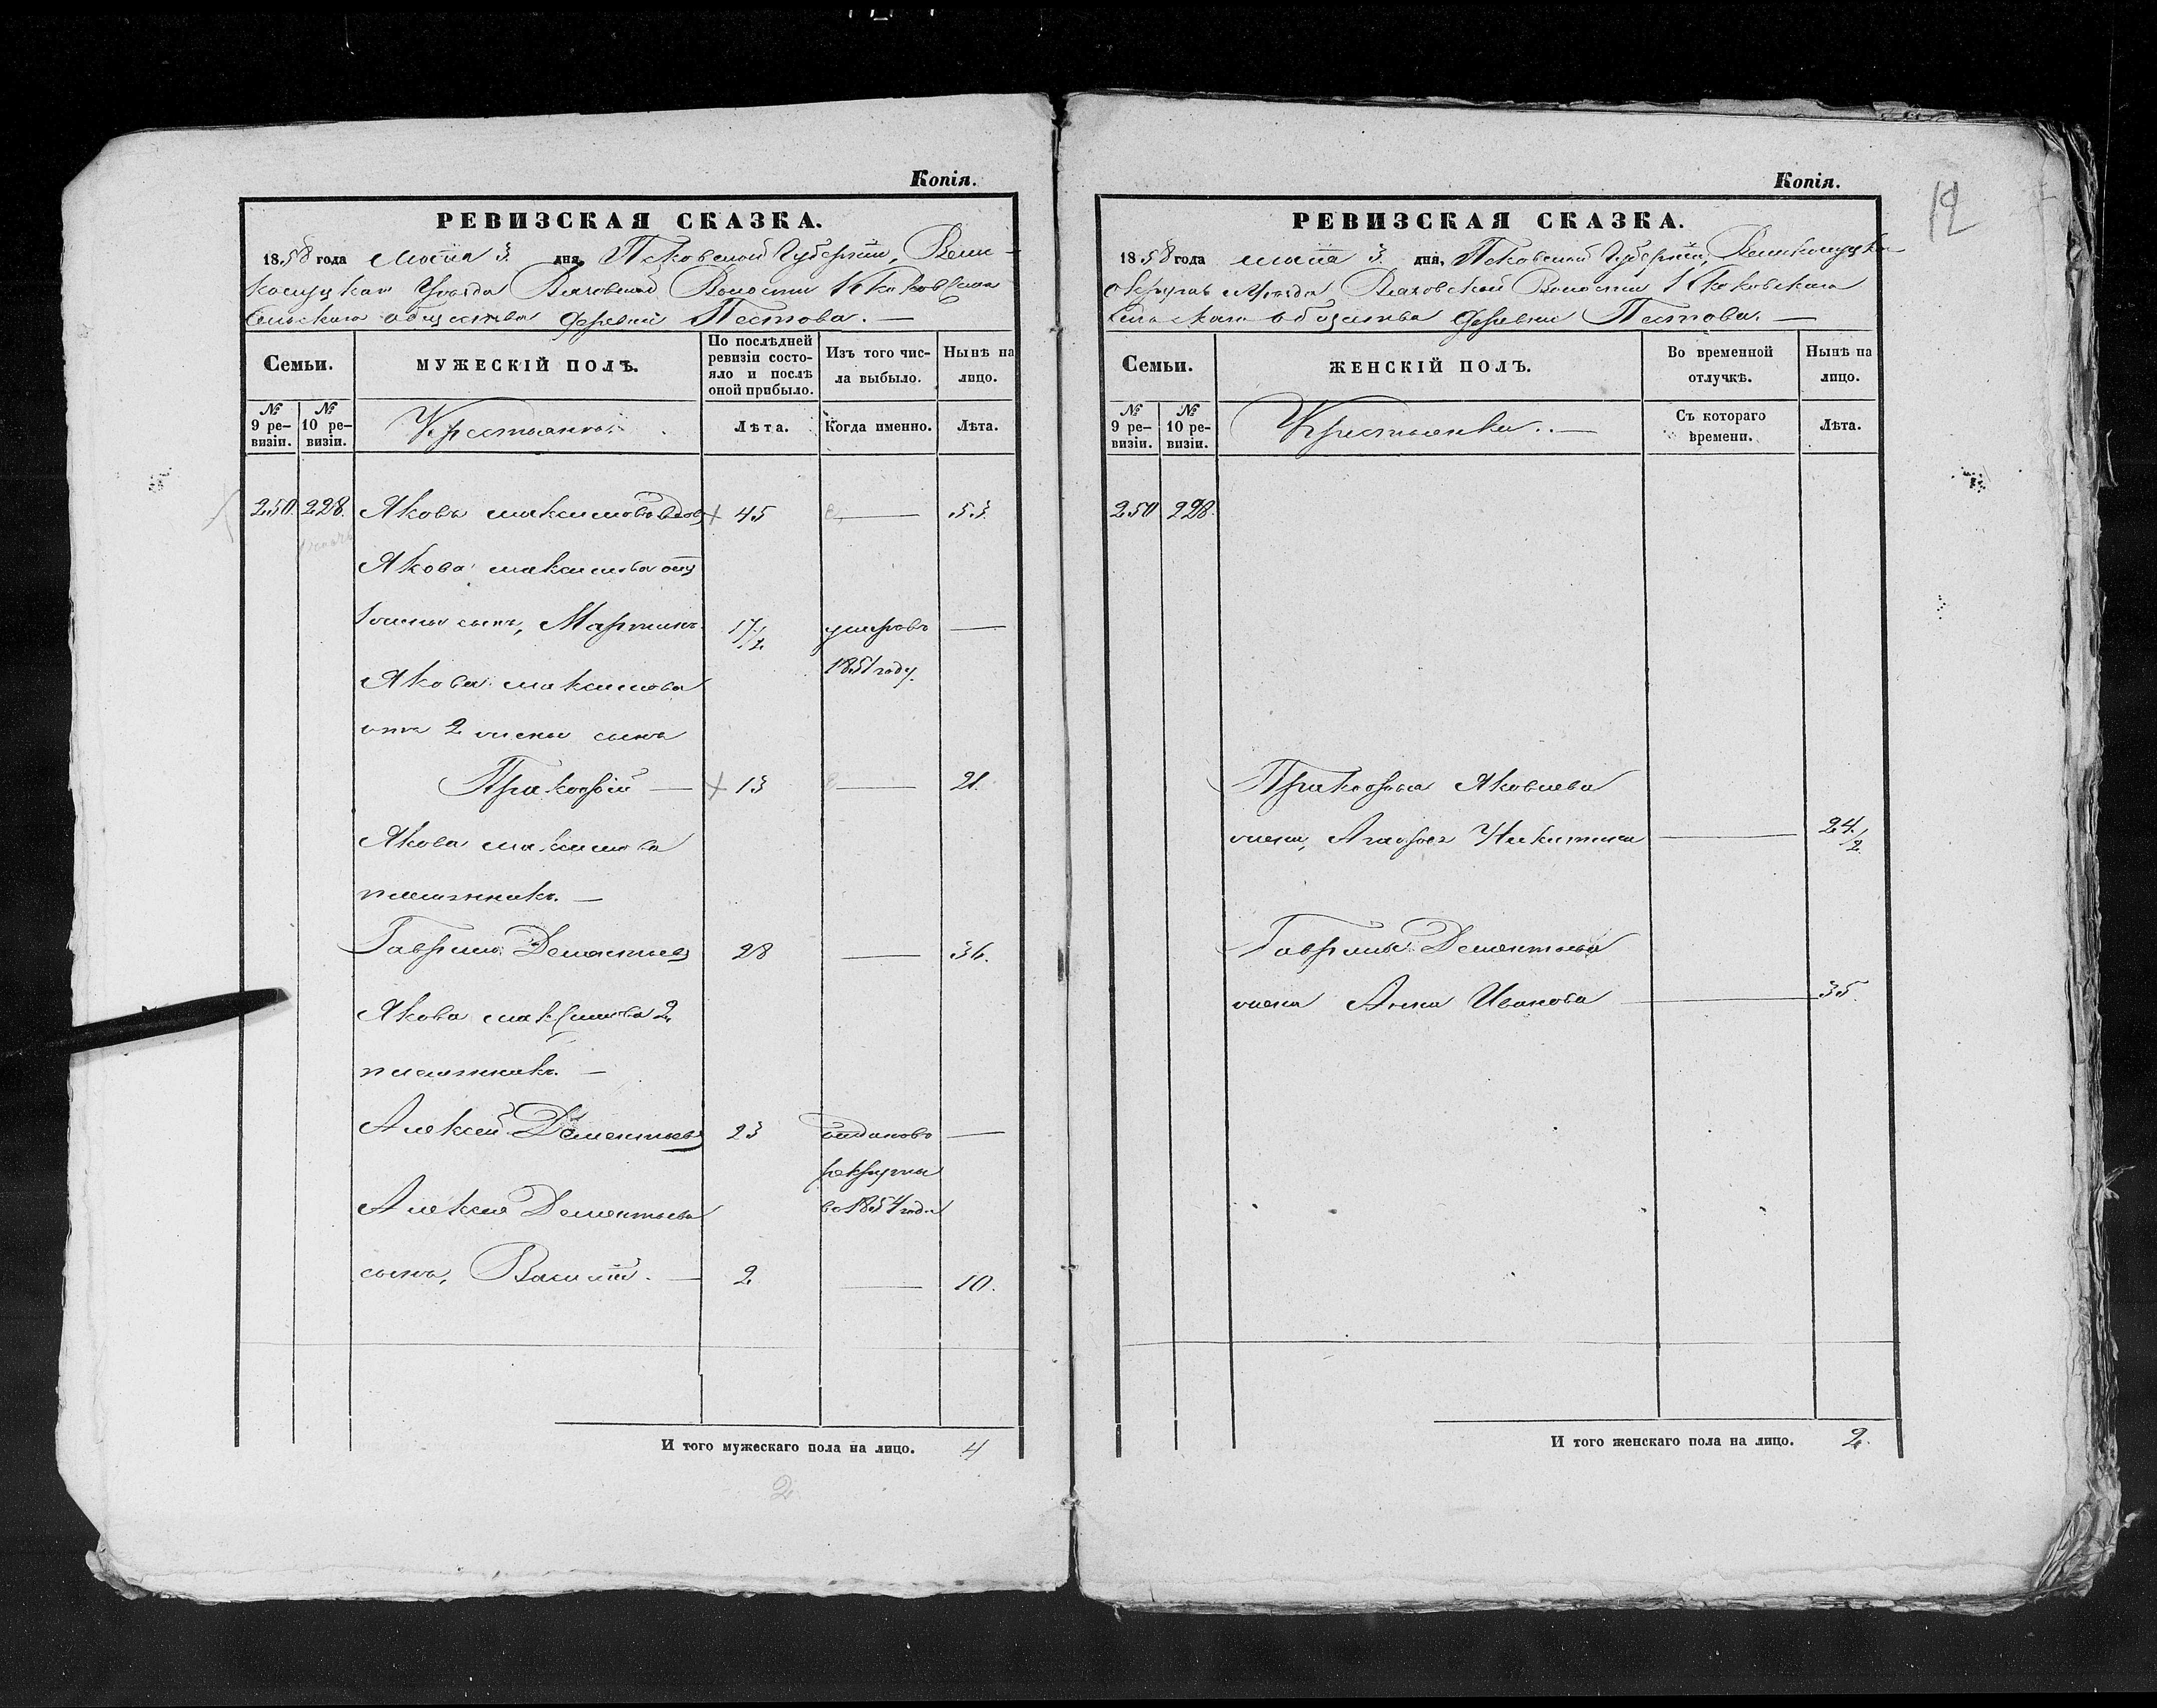 Копія.
РЕВИЗСКАЯ СКАЗКА.
1858 года Маія 3 дня, Псковской Губерніи, Вели-
колуцкаго Уѣзда Волости
Сельскаго общества деревни Пестова. —
Семьи.
МУЖЕСКІЙ ПОЛЪ.
По послѣдней ревизіи состояло и послѣ оной прибыло.
Изъ того числа выбыло.
Нынѣ на лицо.
№ 9 ревизіи.
№ 10 ревизіи.
Крестьяне.
Лѣта.
Когда именно.
Лѣта.
250. 228. Яковъ Максимовъ 45 — 53.
Якова Максимова отъ
1 жены сынъ, Мартинъ 17 1/2 умеръ въ —
1851 году.
Якова Максимова
отъ 2 жены сынъ
Пракофій — 13 — 21.
Якова Максимова
племянникъ. —
Гаврило Дементьевъ 28 — 36.
Якова Максимова 2
племянникъ. —
Алексѣй Дементьевъ 23 отданъ въ —
рекруты
въ 1854 году
Алексея Дементьева
сынъ, Василій. — 2 — 10.
И того мужескаго пола на лицо. 4
2
Копія.
12
РЕВИЗСКАЯ СКАЗКА.
1858 года Маія 3 дня, Псковской Губерніи, Великолуцкаго
округа Уѣзда Волости
Сельскаго общества деревни Пестова. —
Семьи.
ЖЕНСКІЙ ПОЛЪ.
Во временной отлучкѣ.
Нынѣ на лицо.
№ 9 ревизіи.
№ 10 ревизіи.
Крестьянки. —
Съ котораго времени.
Лѣта.
250 228.
Пракофья Яковлева
жена, Агафья Никитина — 24 1/2
Гаврилы Дементьева
жена Анна Иванова — 35.
И того женскаго пола на лицо. 2.